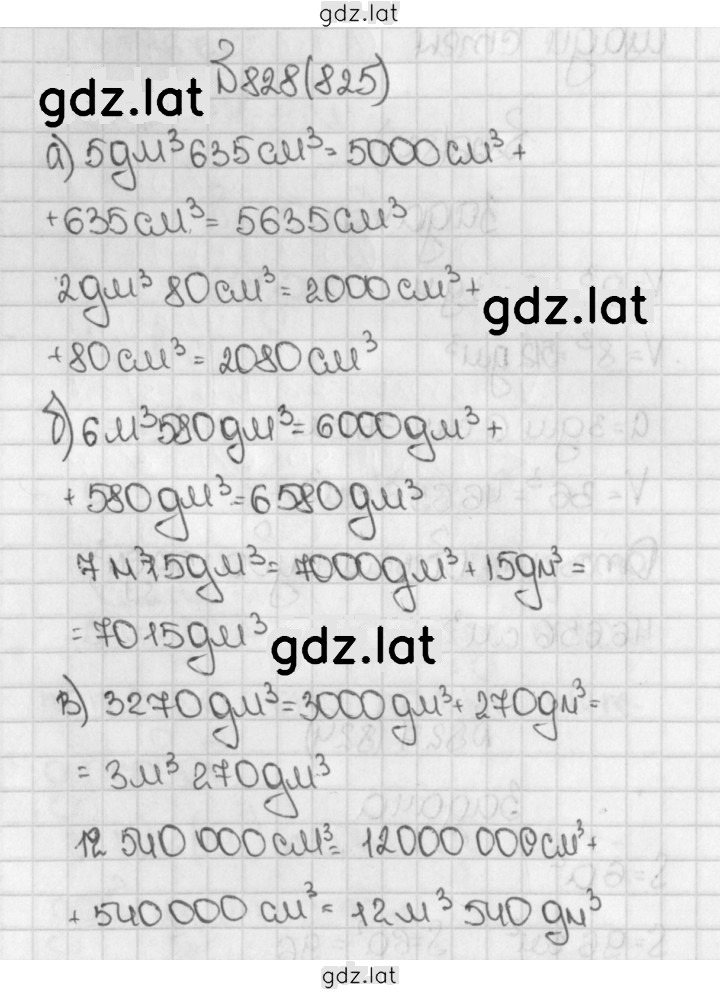 gdz.lat
№828(825)
gdz.lat
а) 5дм³ 635см³ = 5000см³ +
+635см³ = 5635см³
2дм³ 80см³ = 2000см³ +
gdz.lat
+80см³ = 2080см³
б) 6м³ 580дм³ = 6000дм³ +
+580дм³ = 6580дм³
7м³ 15дм³ = 7000дм³ + 15дм³ =
= 7015дм³
gdz.lat
в) 3270дм³ = 3000дм³ + 270дм³ =
= 3м³ 270дм³
12 540 000см³ = 12000 000см³ +
+ 540000 см³ = 12м³ 540дм³
gdz.lat